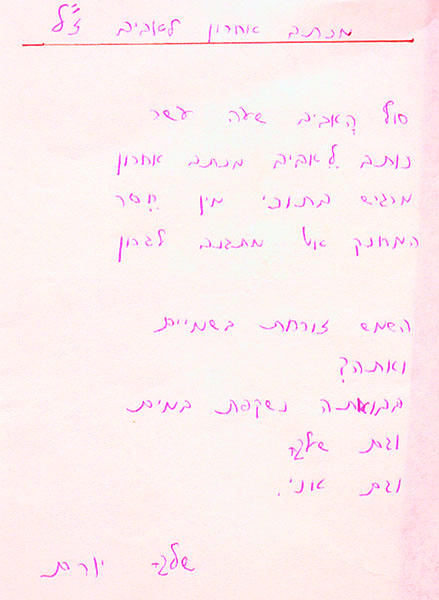 מכתב אחרון לאביב ז"ל
סוף הָאביב שעה עשר
כותב לֵאביב מכתב אחרון
מרגיש בתוכי מין חֶסר
המחנק אט מתגנב לגרון
השמש זורחת בשמיים
ואתה?
בבואתה נשקפת במים
וגם שלך
וגם אני.
שלך יורם